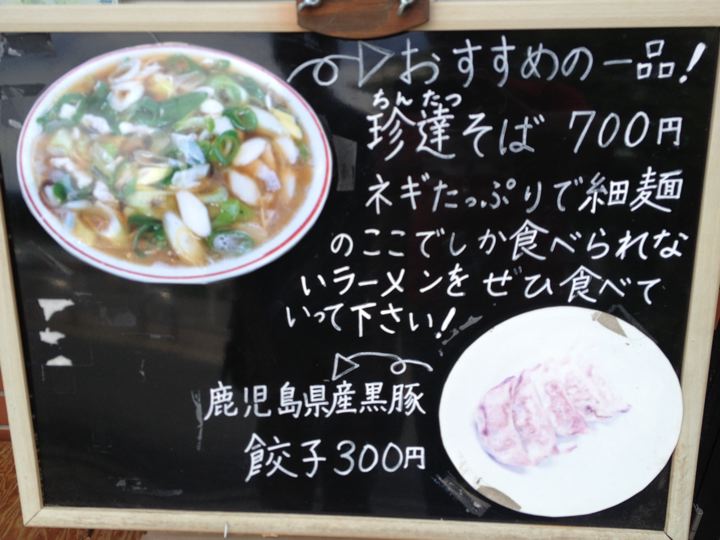 おすすめの一品!
ちんたつ
珍達そば 700円
ネギたっぷりで細麺
のここでしか食べられな
いラーメンをぜひ食べて
いって下さい!
鹿児島県産黒豚
餃子300円